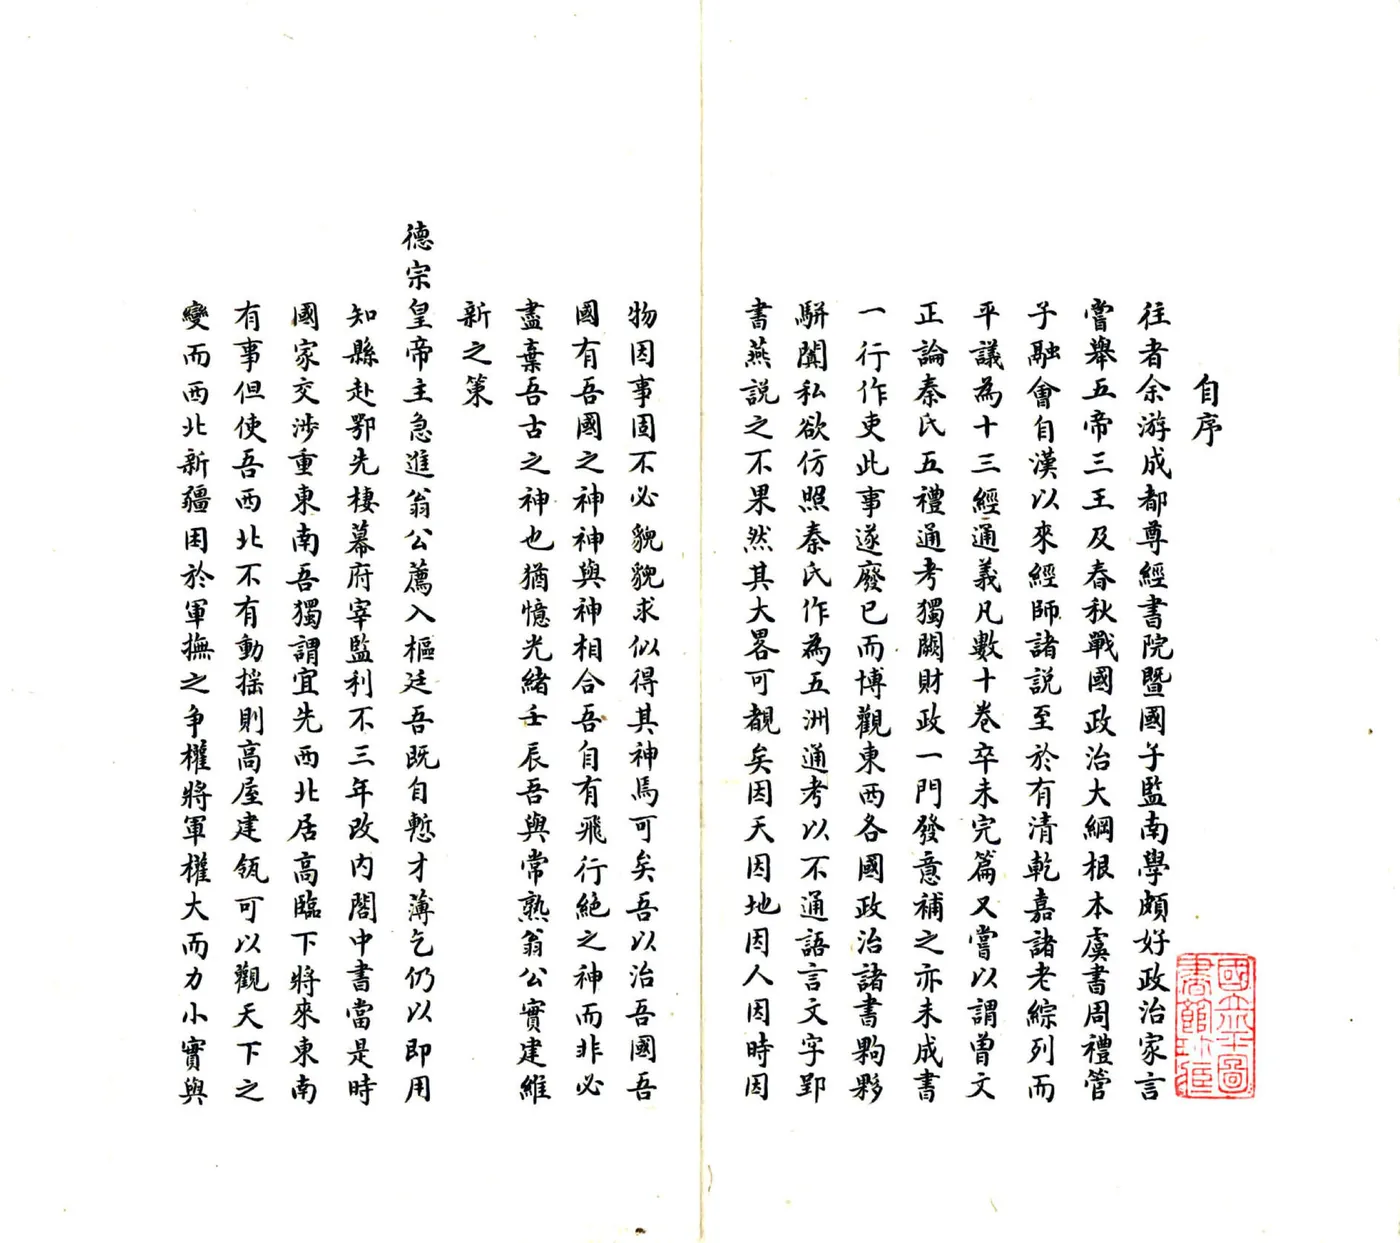 自序
往者余游成都尊經書院暨國子監南學頗好政治家言
嘗舉五帝三王及春秋戰國政治大綱根本虞書周禮管
子融會自漢以來經師諸説至於有清乾嘉諸老綜列而
平議為十三經通義凡數十卷卒未完篇又嘗以謂曾文
正論秦氏五禮通考獨闕財政一門發意補之亦未成書
一行作吏此事遂廢已而博觀東西各國政治諸書夥夥
駢闐私欲仿照秦氏作為五洲通考以不通語言文字郢
書燕説之不果然其大畧可覩矣因天因地因人因時因
物因事固不必貌貌求似得其神焉可矣吾以治吾國吾
國有吾國之神神與神相合吾自有飛行絶之神而非必
盡棄吾古之神也猶憶光緒壬辰吾與常熟翁公實建維
新之策
德宗皇帝主急進翁公薦入樞廷吾既自慙才薄乞仍以即用
知縣赴鄂先棲幕府宰監利不三年改内閣中書當是時
國家交涉重東南吾獨謂宜先西北居高臨下將來東南
有事但使吾西北不有動摇則高屋建瓴可以觀天下之
變而西北新疆困於軍撫之争權將軍權大而力小實與
國立北平圖書館珍藏